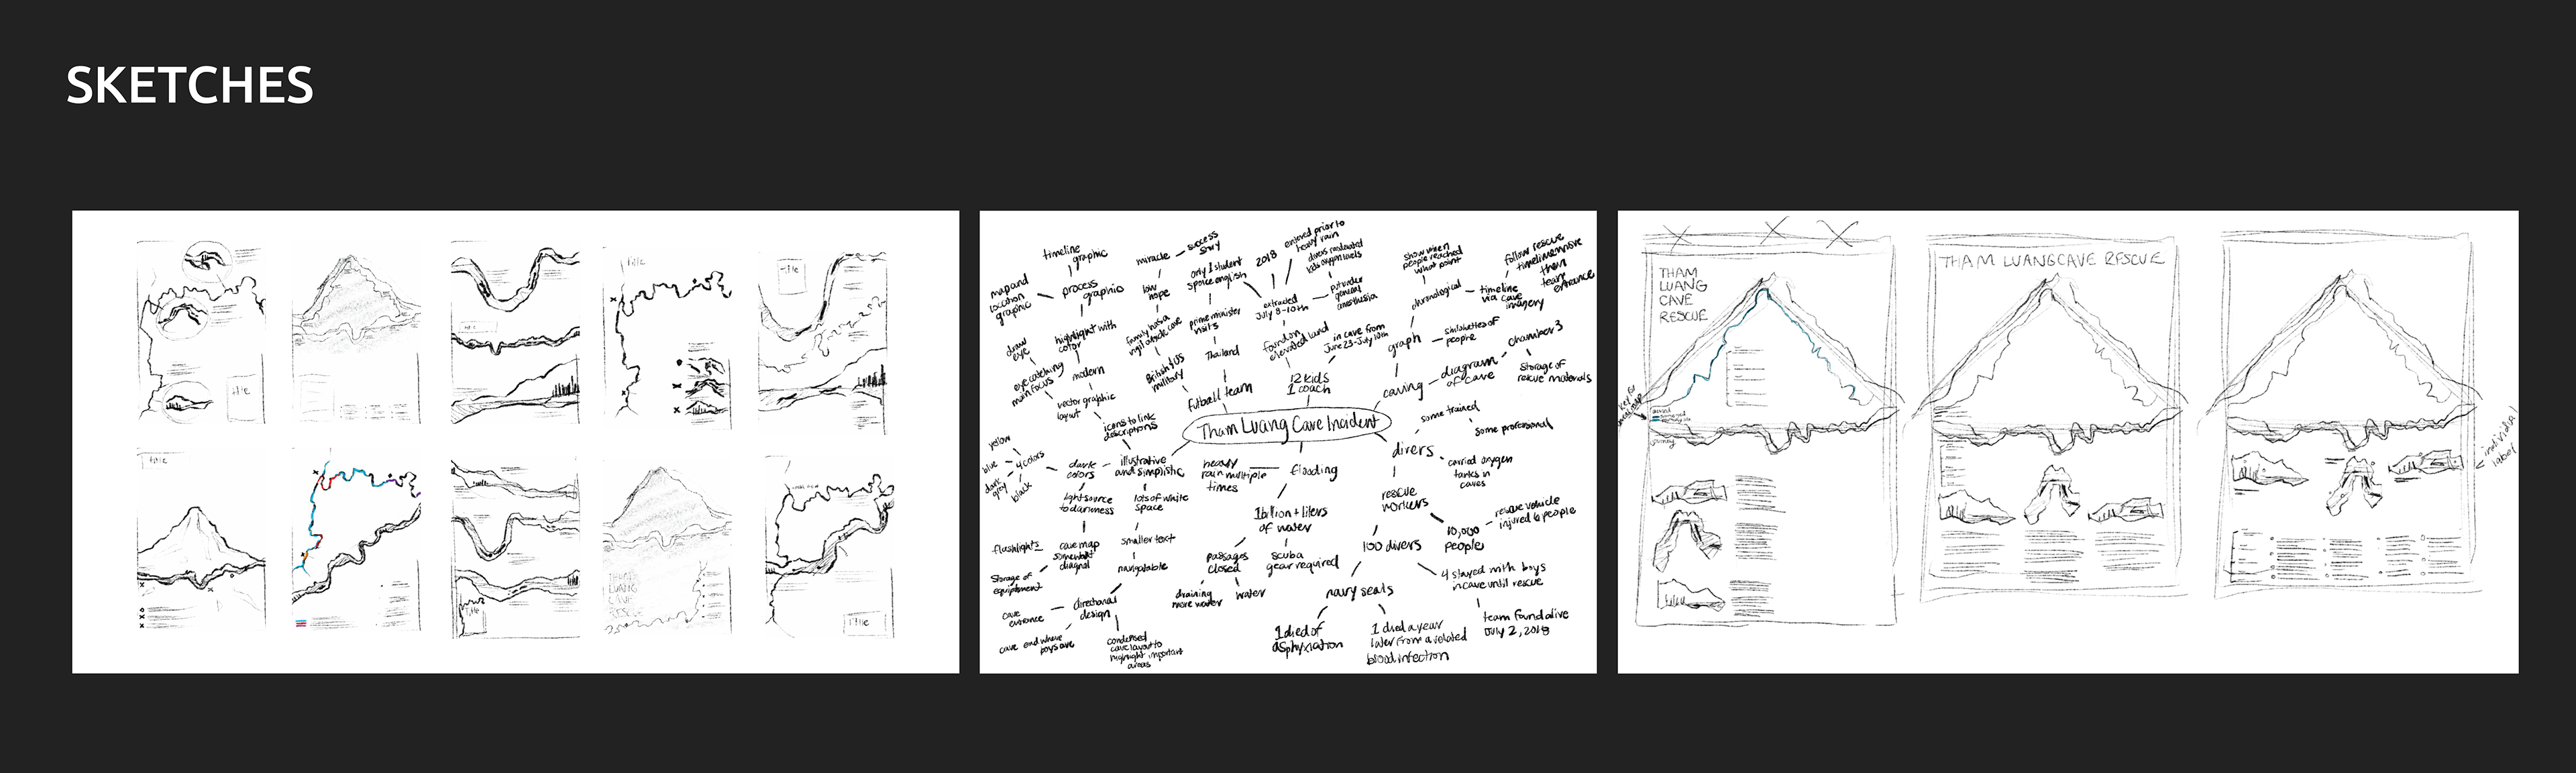 SKETCHES
title
Title
Title
title
title
THAM
LUANG
CAVE
RESCUE
Title
Title
timeline
graphic
map and
location
graphic
process
graphic
miracle
success
story
low
hope
only 1 student
spoke english
2018
entered prior to
heavy rain
extracted
July 8-10th
put under
general
anesthesia
show when
people reached
what point
chronological
timeline
via cave
imagery
follow rescue
draw
eye
highlight with
color
eye catching
main focus
modern
vector graphic
layout
icons to link
descriptions
prime minister
visits
Thailand
British + US
military
futball team
found on
elevated land
in cave from
June 23-July 10th
12 kids
1 coach
graph
silohuettes of
people
caving
diagram
of cave
chamber 3
Storage of
rescue materials
Tham Luang Cave Incident
yellow
blue
dark
grey
black
4 colors
dark
colors
illustrative
and simplistic
light source
to darkness
lots of white
space
smaller text
navigatable
flashlights
cave map
diagnal
Storage of
equiptment
cave
entrance
directional
design
cave end where
boys are
condensed
cave layout to
highlight important
areas
heavy
rain multiple
times
flooding
1 billion + liters
of water
passages
closed
scuba
gear required
draining
more water
water
divers
some trained
some profesional
carried oxygen
tanks in
caves
rescue
workers
10,000
people
rescue vehicle
injured 6 people
100 divers
4 stayed with boys
in cave until rescue
team found alive
July 2, 2018
navy seals
1 died of
asphyxiation
1 died a year
later from a related
blood infection
THAM
LUANG
CAVE
RESCUE
THAM LUANG CAVE RESCUE
individual
label